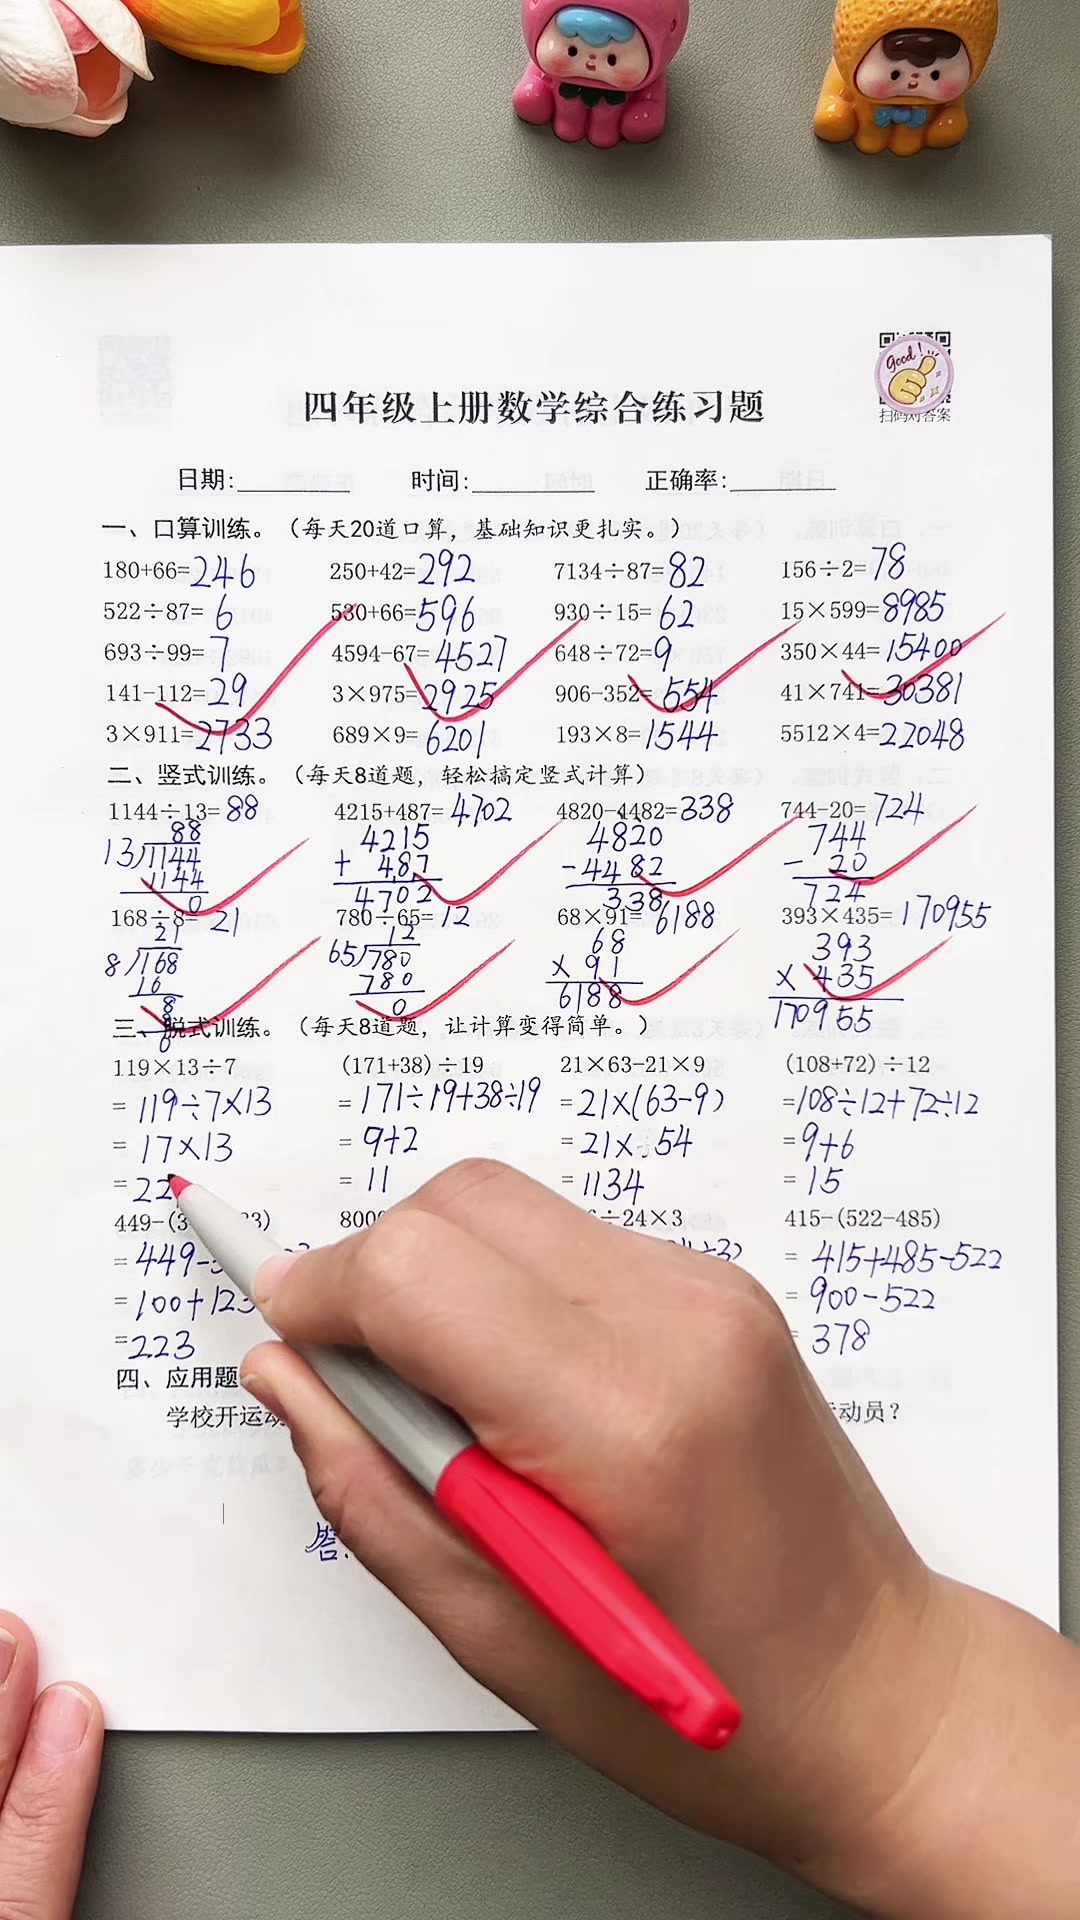 good!
扫码对答案
四年级上册数学综合练习题
日期:________ 时间:________ 正确率:________
一、口算训练。（每天20道口算，基础知识更扎实。）
180+66=246 250+42=292 7134÷87=82 156÷2=78
522÷87=6 530+66=596 930÷15=62 15×599=8985
693÷99=7 4594-67=4527 648÷72=9 350×44=15400
141-112=29 3×975=2925 906-352=554 41×741=30381
3×911=2733 689×9=6201 193×8=1544 5512×4=22048
二、竖式训练。（每天8道题，轻松搞定竖式计算）
1144÷13=88 4215+487=4702 4820-4482=338 744-20=724
88 4215 4820 744
13/1144 + 487 -4482 - 20
1144 4702 338 724
0
168÷8=21 780÷65=12 68×91=6188 393×435=170955
21 12 68 393
8/168 65/780 × 91 × 435
16 780 6188 170955
8 0
8
0
三、脱式训练。（每天8道题，让计算变得简单。）
119×13÷7 (171+38)÷19 21×63-21×9 (108+72)÷12
=119÷7×13 =171÷19+38÷19 =21×(63-9) =108÷12+72÷12
=17×13 =9+2 =21×54 =9+6
=22 =11 =1134 =15
449-(3 3) 800 ÷24×3 415-(522-485)
=449- =415+485-522
=100+123 =900-522
=223 =378
四、应用题
学校开运动 运动员？
答: